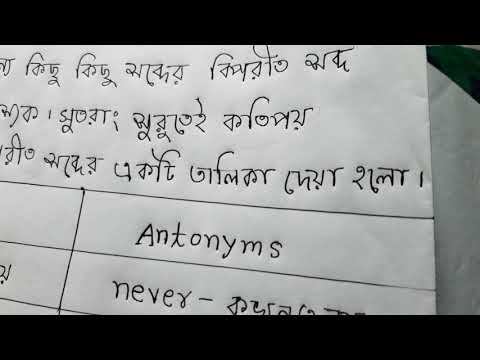 কিছু কিছু শব্দের বিপরীত শব্দ
সুতরাং শুরুতেই কতিপয়
শব্দের একটি তালিকা দেয়া হলো।
Antonyms
never -